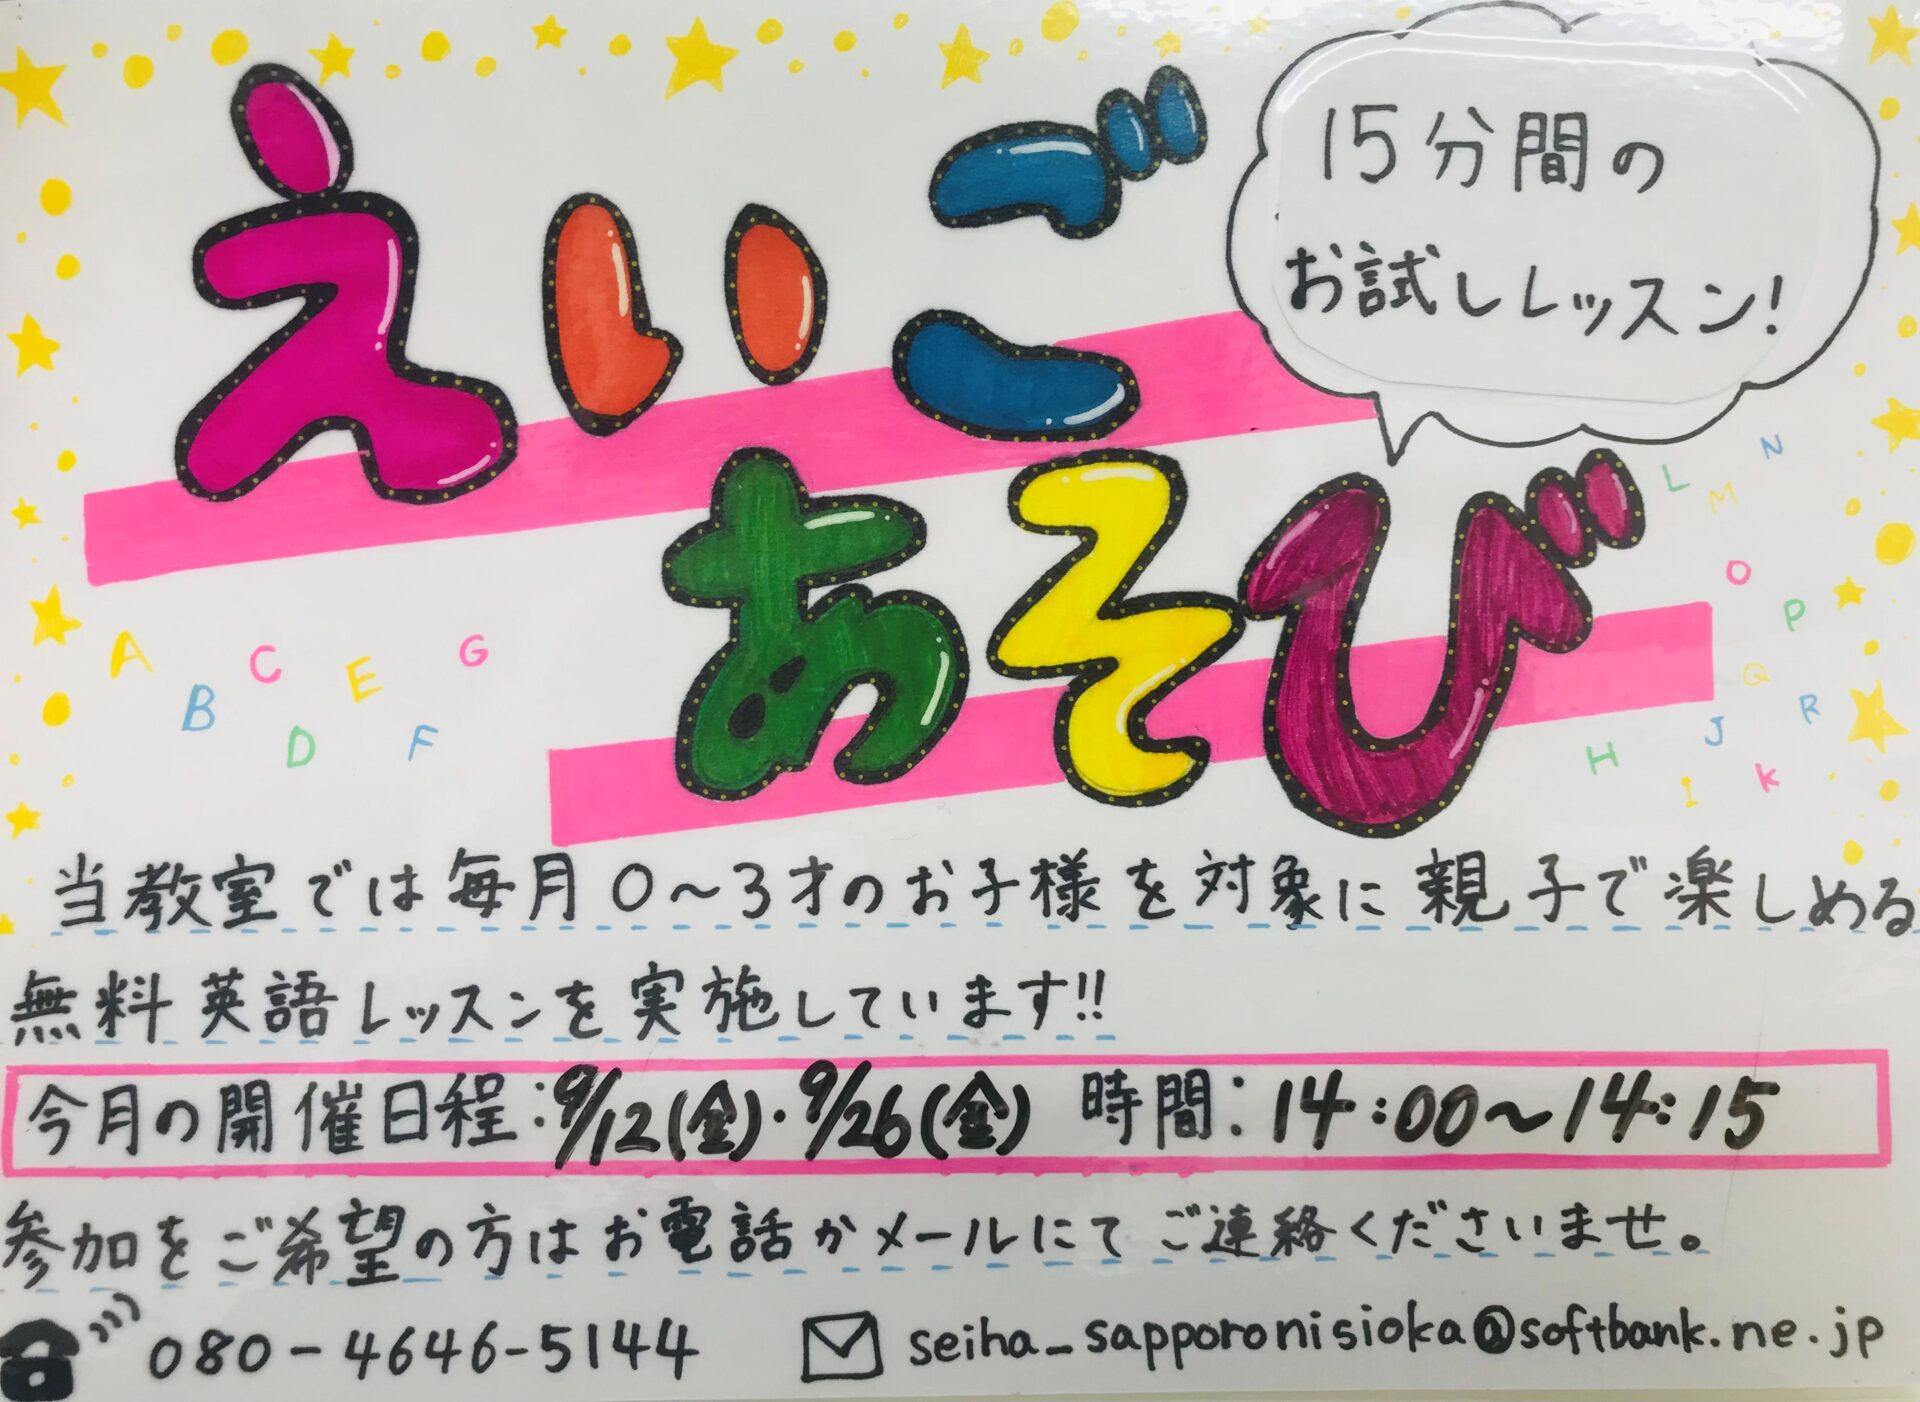 えいご
あそび
15分間の
お試しレッスン!
A B C D E F G
L M N O P Q R
H I J K
当教室では毎月0〜3才のお子様を対象に親子で楽しめる
無料英語レッスンを実施しています!!
今月の開催日程:9/12(金)・9/26(金) 時間:14:00〜14:15
参加をご希望の方はお電話かメールにてご連絡くださいませ。
080-4646-5144 seiha_sapporonisioka@softbank.ne.jp